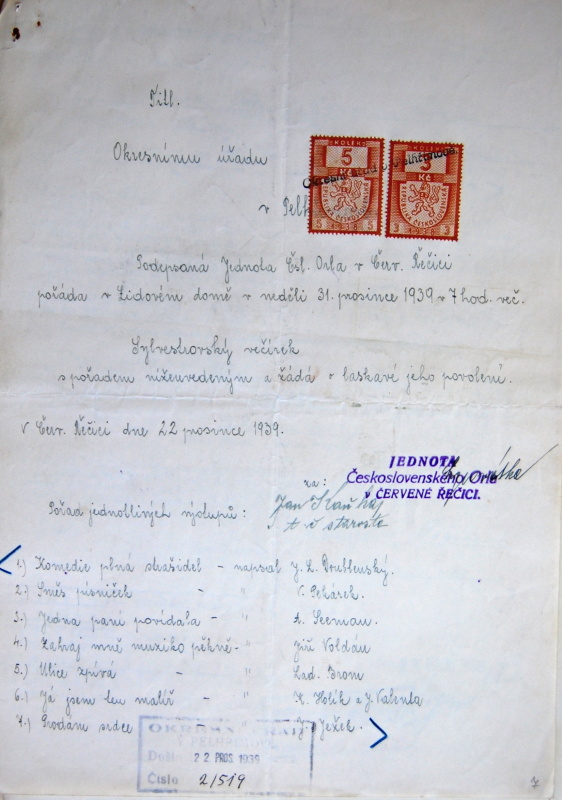 Titl.
Okresnímu úřadu
v Pelh
KOLEK KOLEK
5 3
Kč
REPUBLIKA ČESKOSLOVENSKÁ REPUBLIKA ČESKOSLOVENSKÁ
5 1938 5 3 1938 3
Podepsaná Jednota Čsl. Orla v Červ. Řečici
pořádá v Lidovém domě v neděli 31. prosince 1939 v 7 hod. več.
Sylvestrovský večírek
s pořadem níženvedeným a žádá o laskavé jeho povolení.
V Červ. Řečici dne 22 prosince 1939.
JEDNOTA
za: Československého Orla
V ČERVENÉ ŘEČICI.
Jan
t č starosta
Pořad jednotlivých výstupů:
1.) Komedie plná strašidel - napsal J. L.
2.) Směs písniček - " V. Pekárek.
3.) Jedna paní povídala - " A. Seeman.
4.) Zahraj mně muziko pěkně - " Jiří Voldán
5.) Ulice zpívá - " Lad. Brom
6.) Já jsem ten malíř - " K. Holík a J. Valenta
7.) Prodám srdce - " J. Ježek.
OKRESNÍ ÚŘAD
Došlo 22 PROS. 1939
Číslo 2/519
7